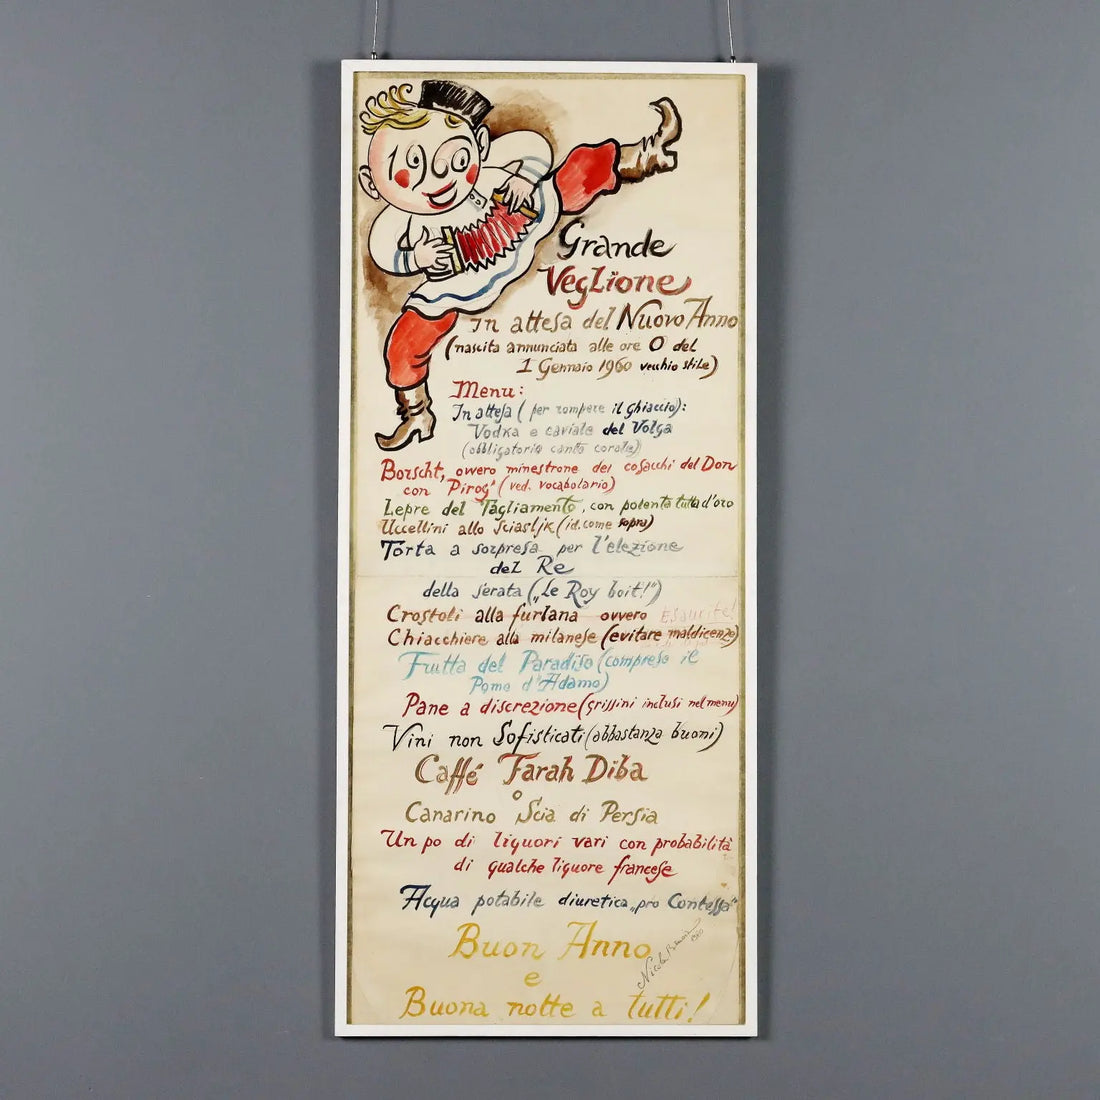 1960
Grande
Veglione
In attesa del Nuovo Anno
(nascita annunciata alle ore 0 del
1 Gennaio 1960 vecchio stile)
Menu:
In attesa (per rompere il ghiaccio):
Vodka e caviale del Volga
(obbligatorio canto corale)
Borscht, ovvero minestrone dei cosacchi del Don
con "Pirog" (ved. vocabolario)
Lepre del Tagliamento, con polenta tutta d'oro
Uccellini allo Sciasljk (id. come sopra)
Torta a sorpresa per l'elezione
del Re
della serata („Le Roy boit!")
Crostoli alla furlana ovvero Esaurite!
Chiacchiere alla milanese (evitare maldicenze)
Frutta del Paradiso (compreso il
Pomo d'Adamo)
Pane a discrezione (grissini inclusi nel menu)
Vini non Sofisticati (abbastanza buoni)
Caffé Farah Diba
o
Canarino Scia di Persia
Un po di liquori vari con probabilità
di qualche liquore francese
Acqua potabile diuretica „pro Contessa"
Buon Anno
e
Buona notte a tutti!
Nicola Benois
1960